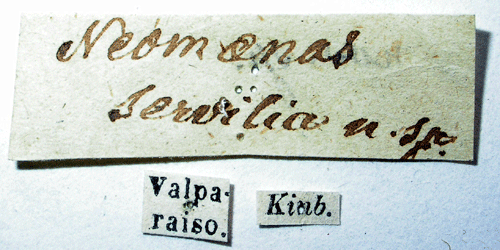 Neomænas
servilia n. sp.
Valpa-
raiso.
Kinb.